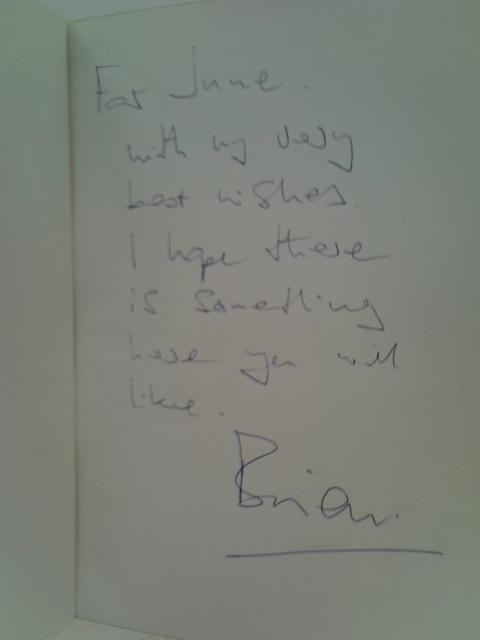 For June.
with my very
best wishes.
I hope there
is something
here you will
like.
Brian